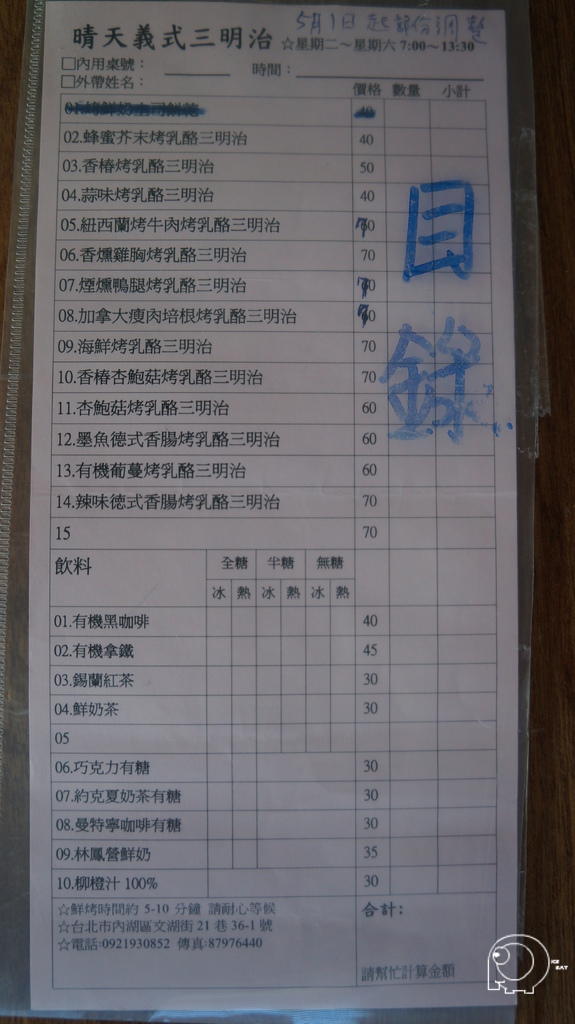 5月1日起部份調整
晴天義式三明治 ☆星期二～星期六 7:00～13:30
□內用桌號：
□外帶姓名： 時間：
價格 數量 小計
目錄
02.蜂蜜芥末烤乳酪三明治 40
03.香椿烤乳酪三明治 50
04.蒜味烤乳酪三明治 40
05.紐西蘭烤牛肉烤乳酪三明治 70
06.香燻雞胸烤乳酪三明治 70
07.煙燻鴨腿烤乳酪三明治 70
08.加拿大瘦肉培根烤乳酪三明治 70
09.海鮮烤乳酪三明治 70
10.香椿杏鮑菇烤乳酪三明治 70
11.杏鮑菇烤乳酪三明治 60
12.墨魚德式香腸烤乳酪三明治 60
13.有機葡蔓烤乳酪三明治 60
14.辣味德式香腸烤乳酪三明治 70
15 70
飲料 全糖 半糖 無糖
冰 熱 冰 熱 冰 熱
01.有機黑咖啡 40
02.有機拿鐵 45
03.錫蘭紅茶 30
04.鮮奶茶 30
05
06.巧克力有糖 30
07.約克夏奶茶有糖 30
08.曼特寧咖啡有糖 30
09.林鳳營鮮奶 35
10.柳橙汁 100% 30
☆鮮烤時間約 5-10 分鐘 請耐心等候
☆台北市內湖區文湖街 21 巷 36-1 號
☆電話:0921930852 傳真:87976440
合計：
請幫忙計算金額
ICE
EAT